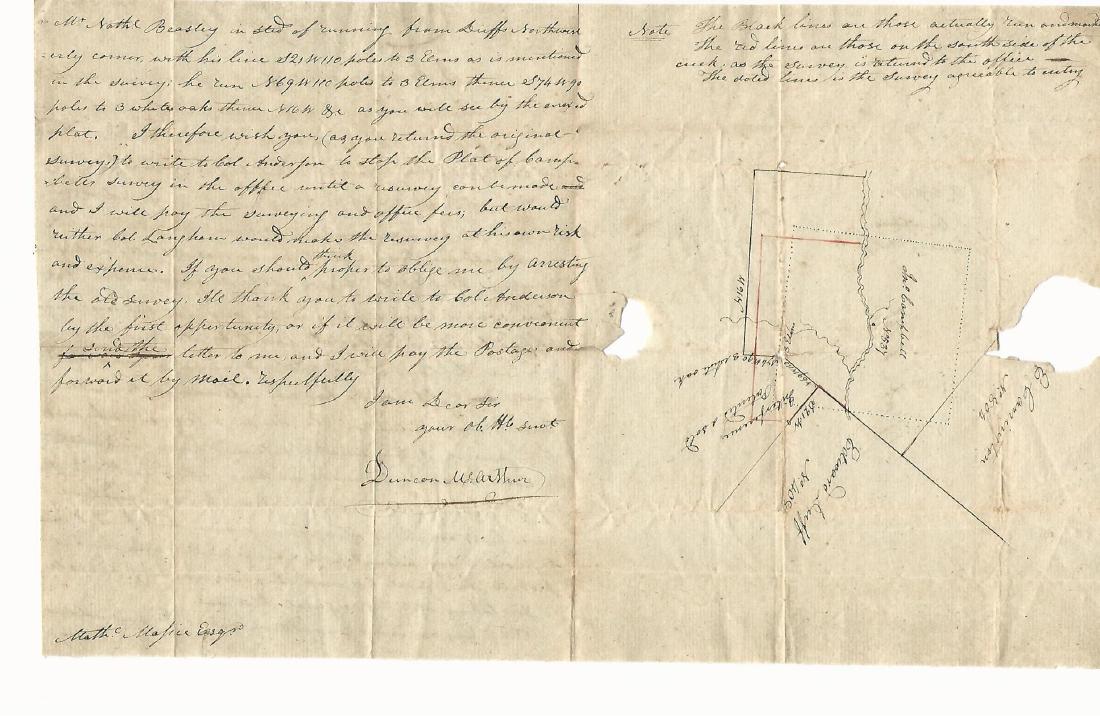 Mr. Nathl. Beasley in sted of running from Duffs Northwest
erly corner, with his line S21W 110 poles to 3 Elms as is mentioned
in the survey; he run N69W 110 poles to 3 Elms thence S74W 90
poles to 3 white oaks thence N16W &c as you will see by the
plat. I therefore wish you, (as you returned the original
survey,) to write to Col. Anderson to stop the Plat of Camp-
bells survey in the offfice until a resurvey can be made and
and I will pay the surveying and office fees; but would
rather Col. Langham would make the resurvey at his own risk
and expence. If you should think proper to oblige me by arresting
the old survey. Ile thank you to write to Col. Anderson
by the first opportunity, or if it will be more convenient
send the letter to me, and I will pay the Postage and
forward it by mail. respectfully
I am Dear Sir
your ob. Hb. Servt
Duncan McArthur
Nathl. Massie Esqr.
Note The Black lines are those actually run and
The red lines are those on the south side of the
creek, as the survey is returned to the office
The doted lines is the survey agreable to entry
N16W
Jno Campbell
E Carrington
Edward Duff
Interference